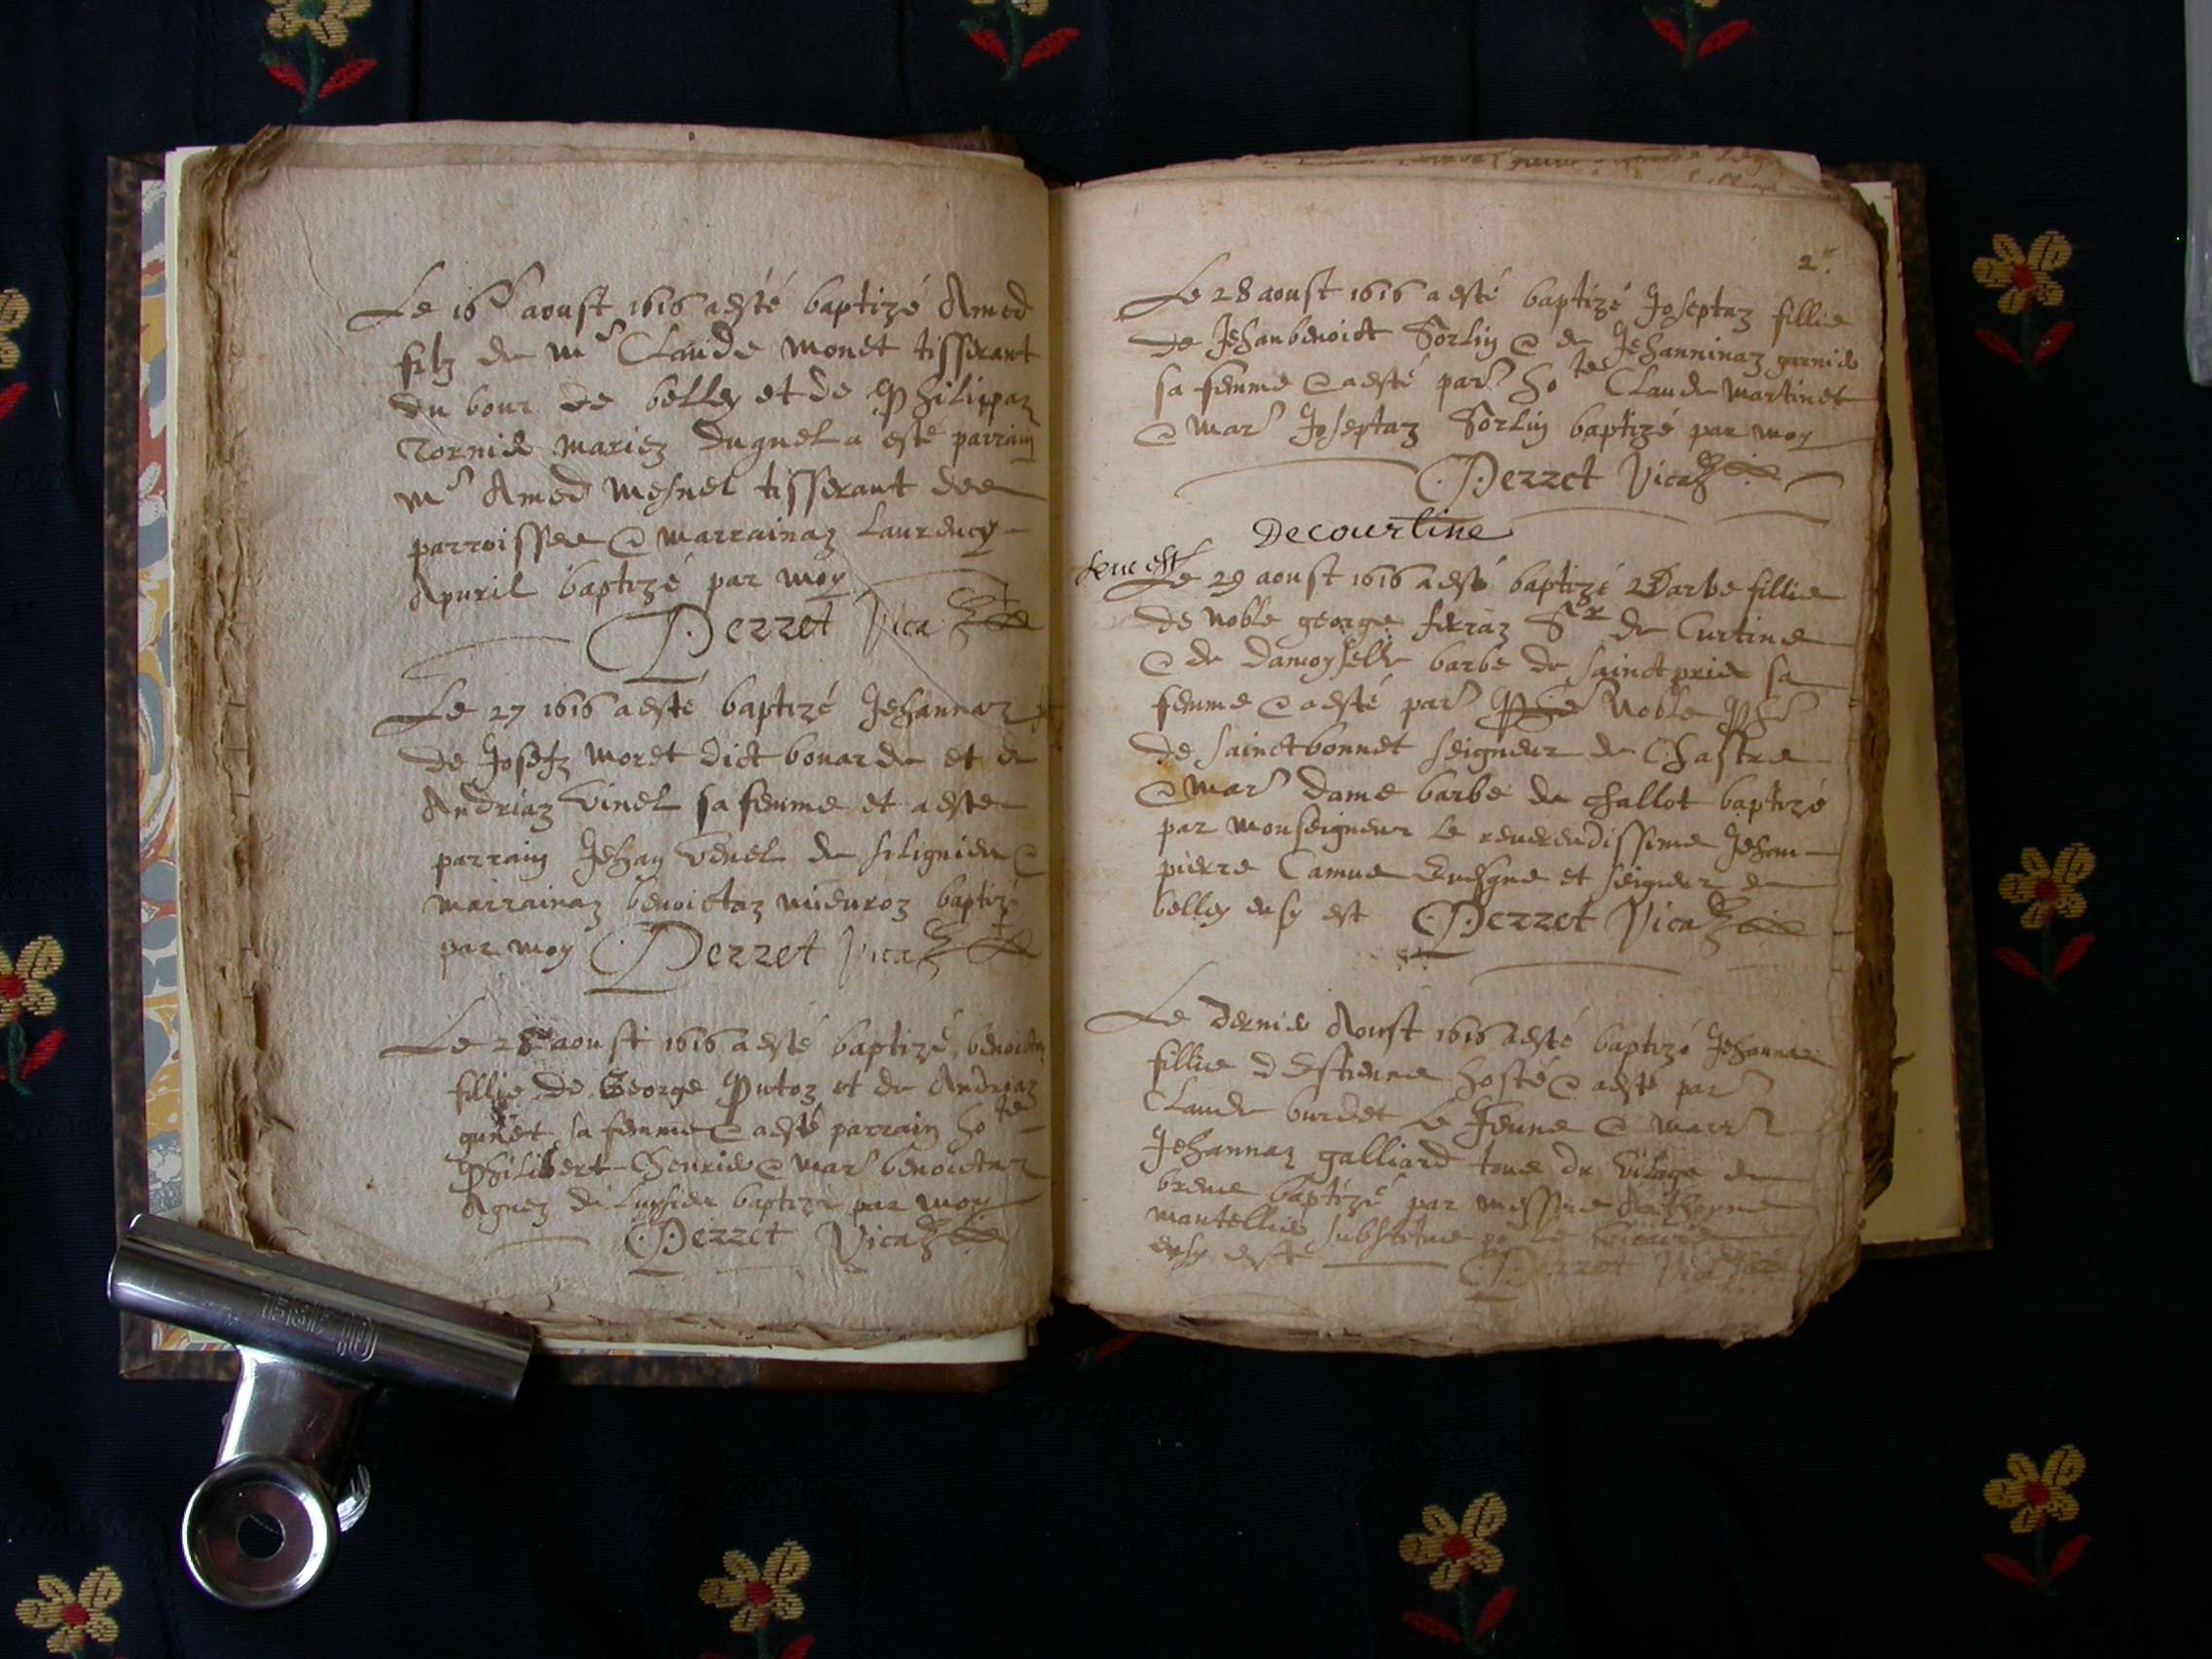 Le 16e aoust 1616 a esté baptizé Amed
filz de Me Claude Monet tisserant
du bour de belley et de Philipaz
Cornier mariez a esté parrain
Me Amed Mesnel tisserant de
parroisse & marrainaz Laurency
Apuril baptizé par moy
Perret Vicaire
Le 27 1616 a esté baptizé Jehannaz
de Josefz Moret dict bouarde et de
Andriaz Vinel sa femme et a este
parrain Jehan Venel de &
marrainaz benoictaz baptizé
par moy Perret Vicaire
Le 28 aoust 1616 a esté baptizé benoictaz
fillie de George Putoz et de Andriaz
sa femme & a esté parrain ho te
Philibert & mar benoictaz
Agnez de baptizé par moy
Perret Vicaire
2.
Le 28 aoust 1616 a esté baptizé Joseptaz fillie
de Jehanbenoict Sorlin & de Jehanninaz garnier
sa femme & a esté par ho te Claude Martinet
& mar Joseptaz Sorlin baptizé par moy
Perret Vicaire
Decourtine
Le 29 aoust 1616 a esté baptizé Barbe fillie
de Noble george ferraz Sr de Curtine
& de damoyselle barbe de sainct prier sa
femme & a esté par Noble Phe
de sainctbonnet seigneur de Chastre
& mar dame barbe de challot baptizé
par monseigneur le reverendissime Jehan
pierre Camus Evesque et seigneur de
belley ensy est Perret Vicaire
Le dernier Aoust 1616 a esté baptizé Jehannaz
fillie d Estienne hoste & a esté par
Claude burdet le Jeune & marr
Jehannaz galliard tous du vilage de
brene baptizé par messire Anthoyne
mantellier substitue po le vicaire
ensy este Perret Vicaire